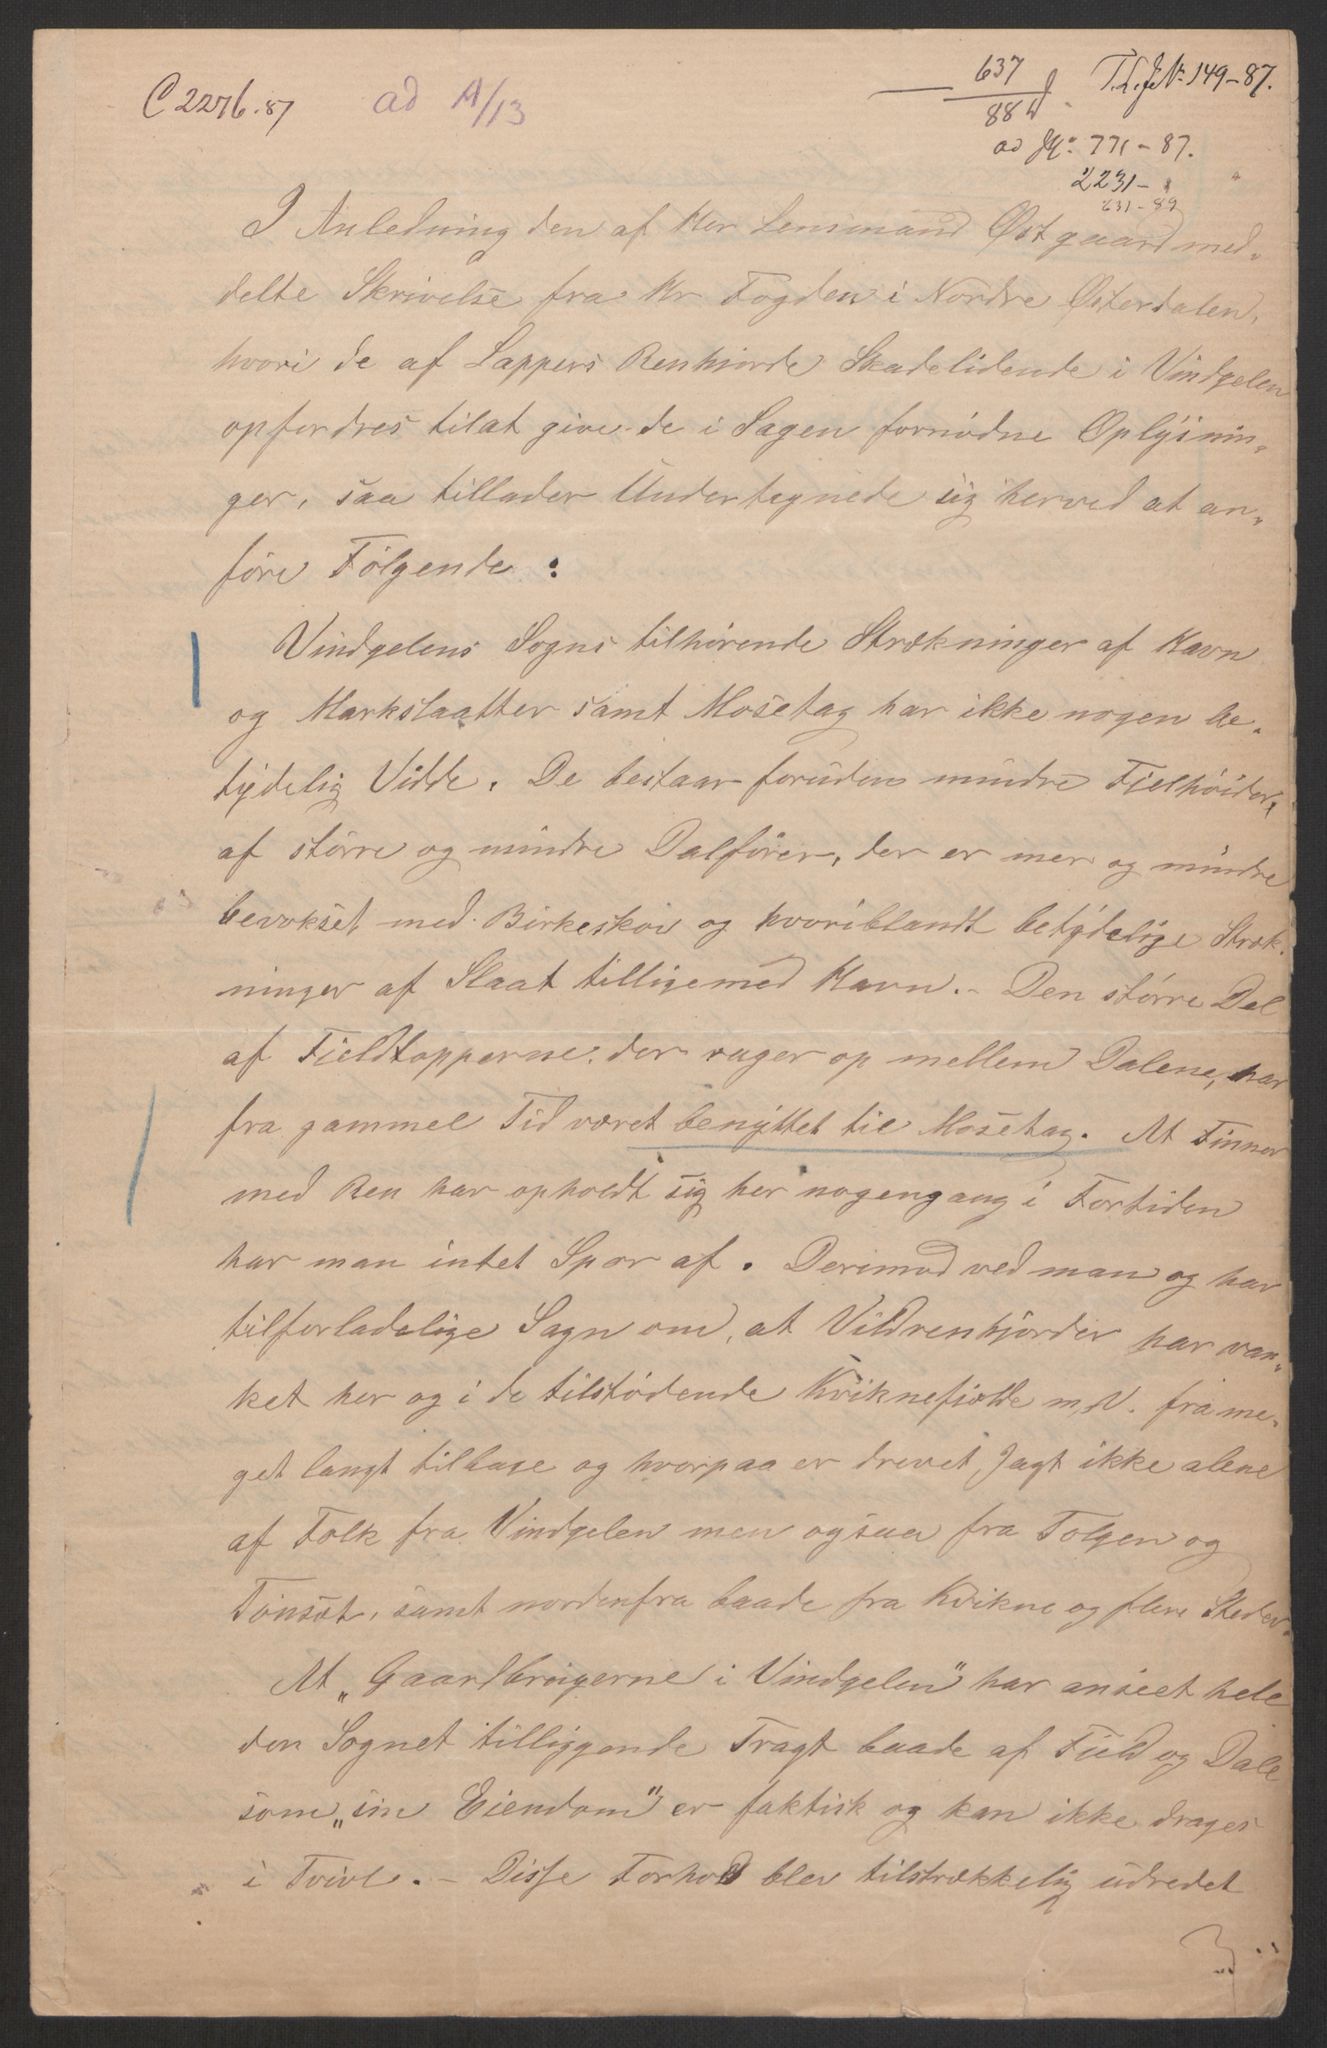 C 2276.87 ad A/13
637
88
T.L.J.Nº 149-87.
ad Jº: 771-87.
2231- "
631-89
I Anledning den af Her Lensmand Østgaard med-
delte Skrivelse fra Hr Fogden i Nordre Østerdalen,
hvori de af Lappers Renhjorde Skadelidende i Vindgelen
opfordres tilat give de i Sagen fornødne Oplysnin-
ger, saa tillader Undertegnede sig herved at an-
føre Følgende:
Vindgelens Sogns tilhørende Strækninger af Havn
og Markslaatter samt Mosetag har ikke nogen be-
tydelig Vidde. De bestaar foruden mindre Fjelhøider,
af større og mindre Dalfører, der er mer og mindre
bevokset med Birkeskov og hvoriblandt betydelige Stræk-
ninger af Slaat tilligemed Havn. - Den større Del
af Fjeldtopperne, der rager op mellem Dalene, har
fra gammel Tid været benyttet til Mosetag. At Finner
med Ren har opholdt sig her nogengang i Fortiden
har man intet Spor af. Derimod ved man og har
tilforladelige Sagn om, at Vildrenhjorder har van-
ket her og i de tilstødende Kviknefjelde m, V. fra me-
get langt tilbage og hvorpaa er drevet Jagt ikke alene
af Folk fra Vindgelen men ogsaa fra Tolgen og
Tønset, samt nordenfra baade fra Kvikne og flere Steder.
At „Gaardbrugerne i Vindgelen" har anseet hele
den Sognet tilliggende Tragt baade af Fjeld og Dale
som „sin Eiendom" er faktisk og kan ikke drages
i Tvivl. - Disse Forhold blev tilstrækkelig udredet